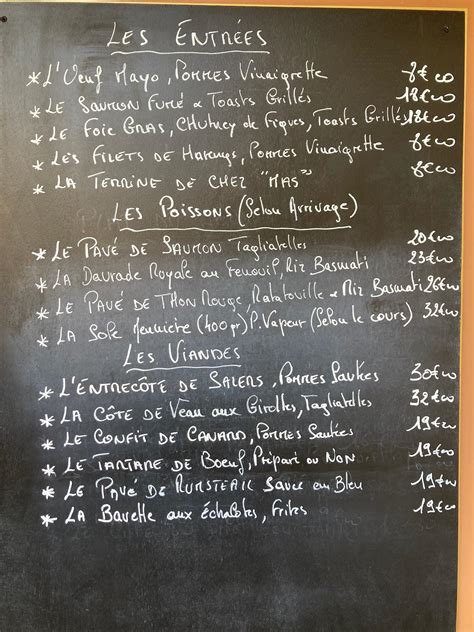 Les Entrées
* L'Oeuf Mayo, Pommes Vinaigrette 8€00
* Le Saumon Fumé & Toasts Grillés 18€00
* Le Foie Gras, Chutney de Figues, Toasts Grillés 18€00
* Les Filets de Harengs, Pommes Vinaigrette 8€00
* La Terrine de chez "Mas" 8€00
Les Poissons (Selon Arrivage)
* Le Pavé de Saumon Tagliatelles 20€00
* La Daurade Royale au Fenouil, Riz Basmati 23€00
* Le Pavé de Thon Rouge Ratatouille & Riz Basmati 26€00
* La Sole Meunière (400gr) P. Vapeur (Selon le cours) 32€00
Les Viandes
* L'Entrecôte de Salers, Pommes Sautées 30€00
* La Côte de Veau aux Girolles, Tagliatelles 32€00
* Le Confit de Canard, Pommes Sautées 19€00
* Le Tartare de Boeuf, Préparé ou Non 19€00
* Le Pavé de Rumsteak Sauce au Bleu 19€00
* La Bavette aux échalotes, Frites 19€00